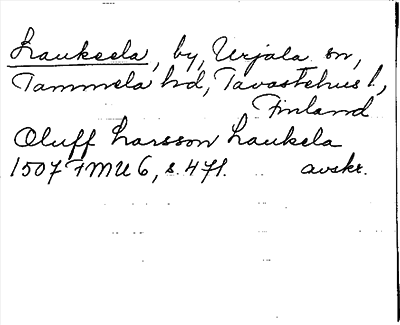 Laukeela, by, Urjala sn,
Tammela hd, Tavastehus l,
Finland
Oluff Larsson Laukela
1507 FMU 6, s. 471. avskr.